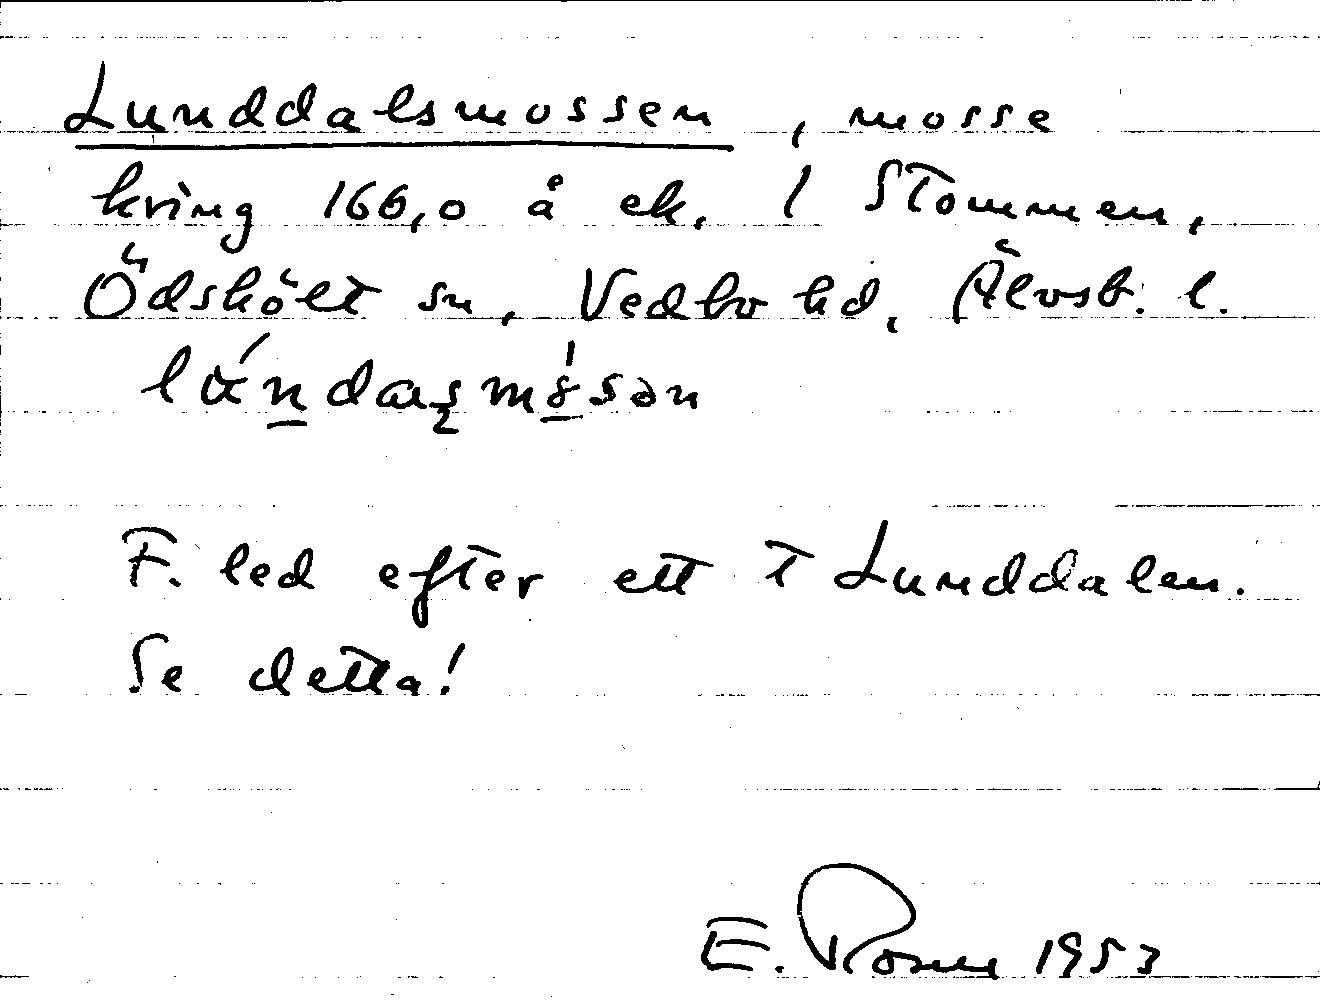 Lunddalsmossen, mosse
kring 166,0 å ek. 1 Stommen,
Ödskölt sn, Vedbo hd, Älvsb. l.
F. led efter ett T Lunddalen.
Se detta!
E. 1953